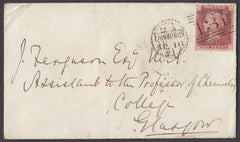 EDINBURGH
J. Ferguson Esq
Assistant to the Professor of Chemistry
College
Glasgow